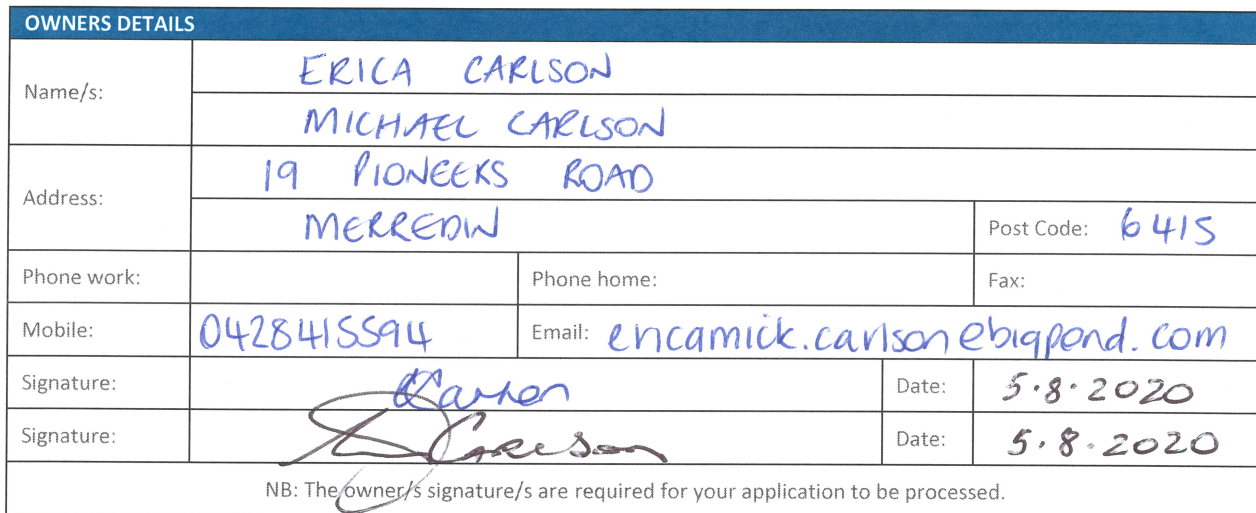 OWNERS DETAILS
Name/s: ERICA CARLSON
MICHAEL CARLSON
Address: 19 PIONEERS ROAD
MERREDIN Post Code: 6415
Phone work: Phone home: Fax:
Mobile: 0428415594 Email: ericamick.carlson@bigpond.com
Signature: Carlson Date: 5.8.2020
Signature: Carlson Date: 5.8.2020
NB: The owner/s signature/s are required for your application to be processed.